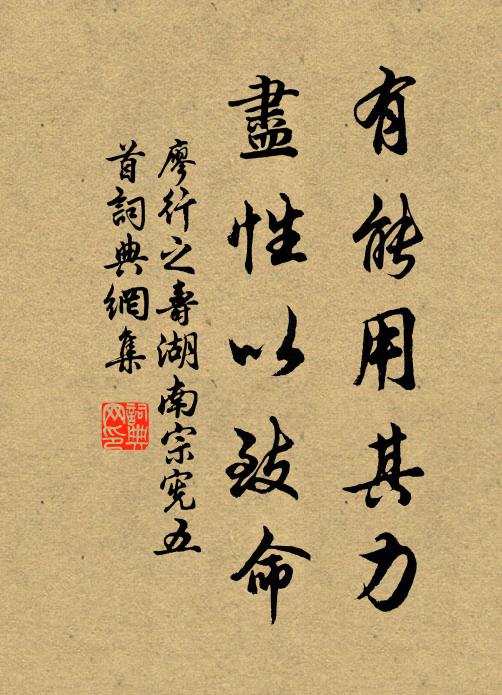 有能用其力
盡性以致命
廖行之壽湖南宗憲五
首詞典網集
詞典網印